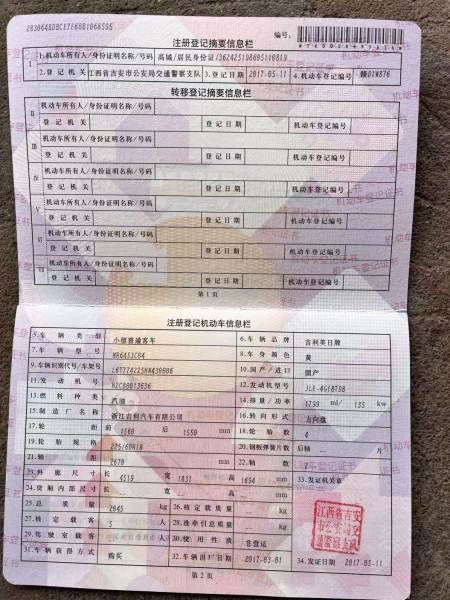 编号:
注册登记摘要信息栏
Ⅰ 1.机动车所有人/身份证明名称/号码
2.登记机关 江西省吉安市公安局交通警察支队 3.登记日期 2017-05-11 4.机动车登记编号 赣D1W876
转移登记摘要信息栏
Ⅱ 机动车所有人/身份证明名称/号码
登记机关 登记日期 机动车登记编号
Ⅲ 机动车所有人/身份证明名称/号码
登记机关 登记日期 机动车登记编号
Ⅳ 机动车所有人/身份证明名称/号码
登记机关 登记日期 机动车登记编号
Ⅴ 机动车所有人/身份证明名称/号码
登记机关 登记日期 机动车登记编号
Ⅵ 机动车所有人/身份证明名称/号码
登记机关 登记日期 机动车登记编号
Ⅶ 机动车所有人/身份证明名称/号码
登记机关 登记日期 机动车登记编号
第1页
注册登记机动车信息栏
5.车辆类型 小型普通客车 6.车辆品牌 吉利美日牌
7.车辆型号 8.车身颜色 黄
9.车辆识别代号/车架号 10.国产/进口 国产
11.发动机号 12.发动机型号 JLE-4G18TDB
13.燃料种类 汽油 14.排量/功率 ml/ 135 kw
15.制造厂名称 浙江吉利汽车有限公司 16.转向形式 方向盘
17.轮距 前 后 mm 18.轮胎数 4
19.轮胎规格 225/60R18 20.钢板弹簧片数 后轴 片
21.轴距 2670 mm 22.轴数 2
23.外廓尺寸 长 4519 宽 1831 高 1694 mm 33.发证机关章
24.货厢内部尺寸 长 宽 高 mm
25.总质量 2045 kg 26.核定载质量 kg
27.核定载客 5 人 28.准牵引总质量 kg
29.驾驶室载客 人 30.使用性质 非营运
31.车辆获得方式 购买 32.车辆出厂日期 2017-03-01 34.发证日期 2017-05-11
第2页